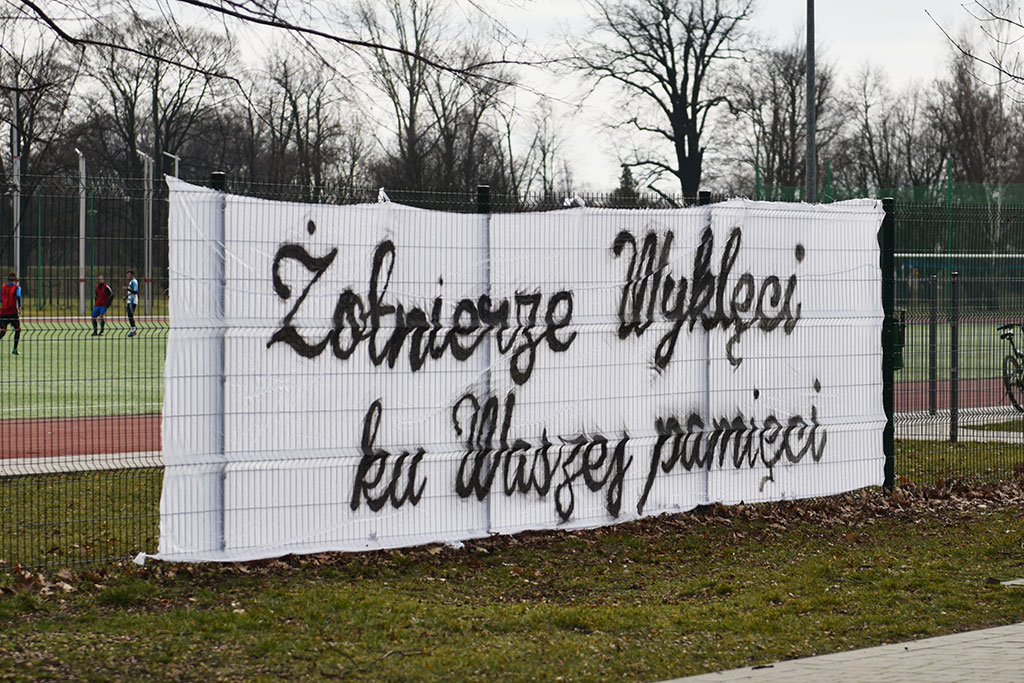 Żołnierze Wyklęci
ku Waszej pamięci